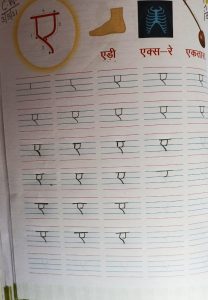 ए
एडी एक्स-रे
ए ए ए
ए ए ए ए ए
ए ए ए ए
ए ए ए ए
ए ए ए
ए ए ए